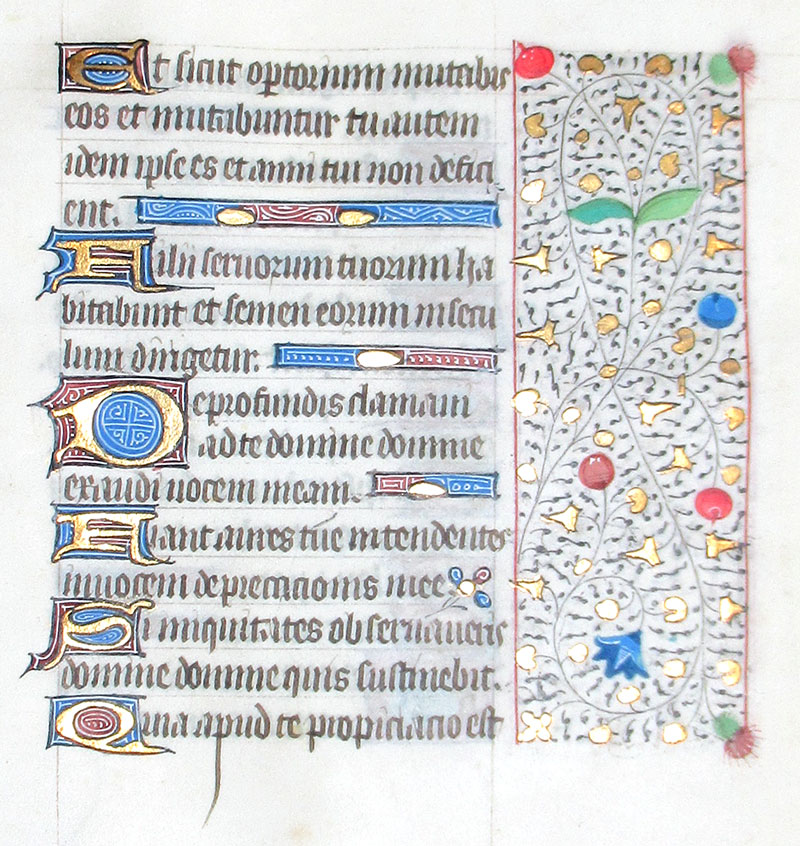 Et sicut optorium mutabis
eos et mutabuntur tu autem
idem ipse es et anni tui non defici
ent.
Filii servorum tuorum ha
bitabunt et semen eorum in secu
lum dirigetur.
De profundis clamavi
ad te domine domine
exaudi vocem meam.
Fiant aures tue intendentes
in vocem deprecacionis mee
Si iniquitates observaveris
domine domine quis sustinebit.
Quia apud te propiciacio est